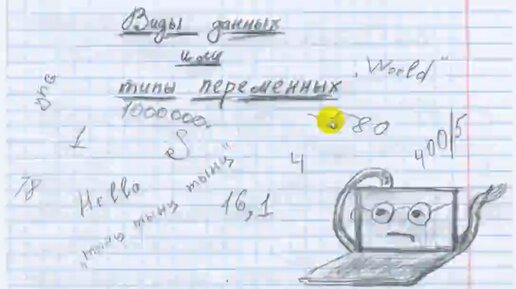 Виды данных
или
типы переменных
"World"
1000000.
580
1
S
4
400/5
78
Hello
"тынц тынц тынц"
16,1